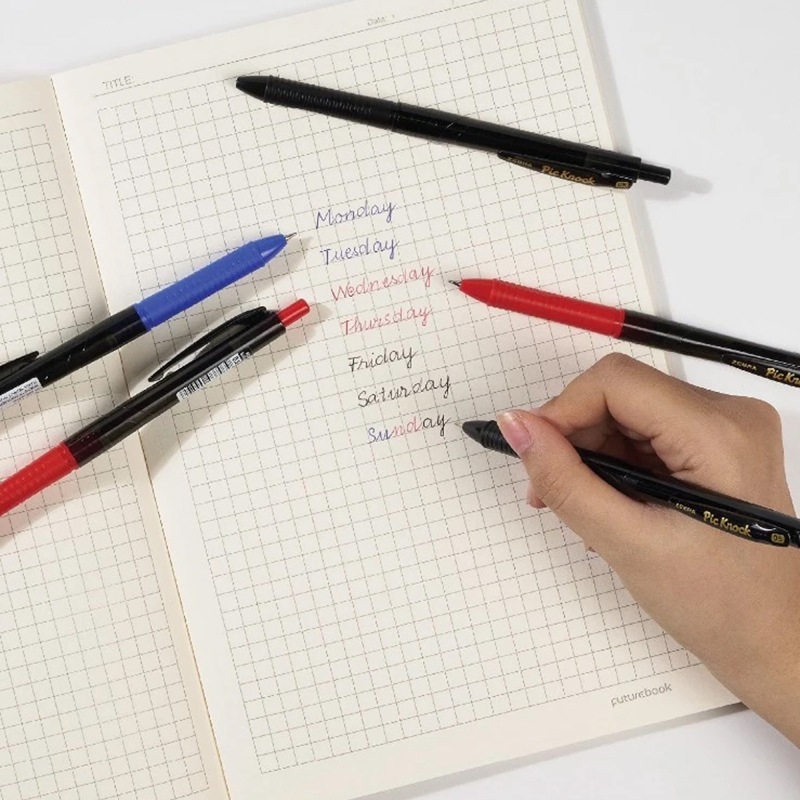 Date:
TITLE:
ZEBRA Pic Knock 0.5
Monday
Tuesday
Wednesday
Thursday
Friday
Saturday
Sunday
ZEBRA Pic Kn
ZEBRA Pic Knock 0.5
futurebook